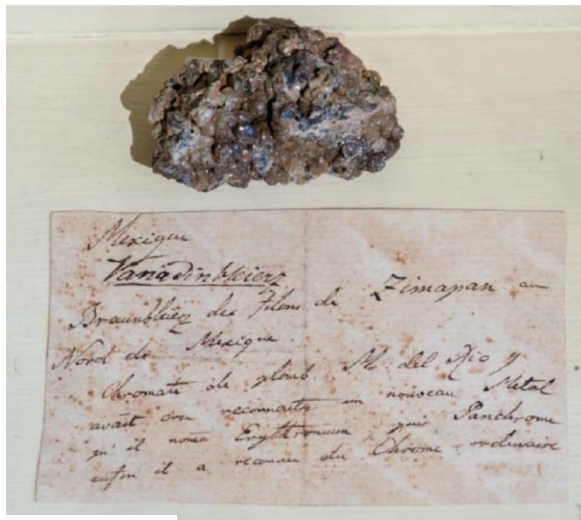 Mexique
Vanadinbleierz
Braunbleierz des filons de Zimapan au
Nord de Mexique.
Chromate de plomb. M. del Rio y
avait cru reconnaitre un nouveau Metal
qu'il noma Erythronium puis Panchrome
enfin il a reconnu du Chrome ordinaire